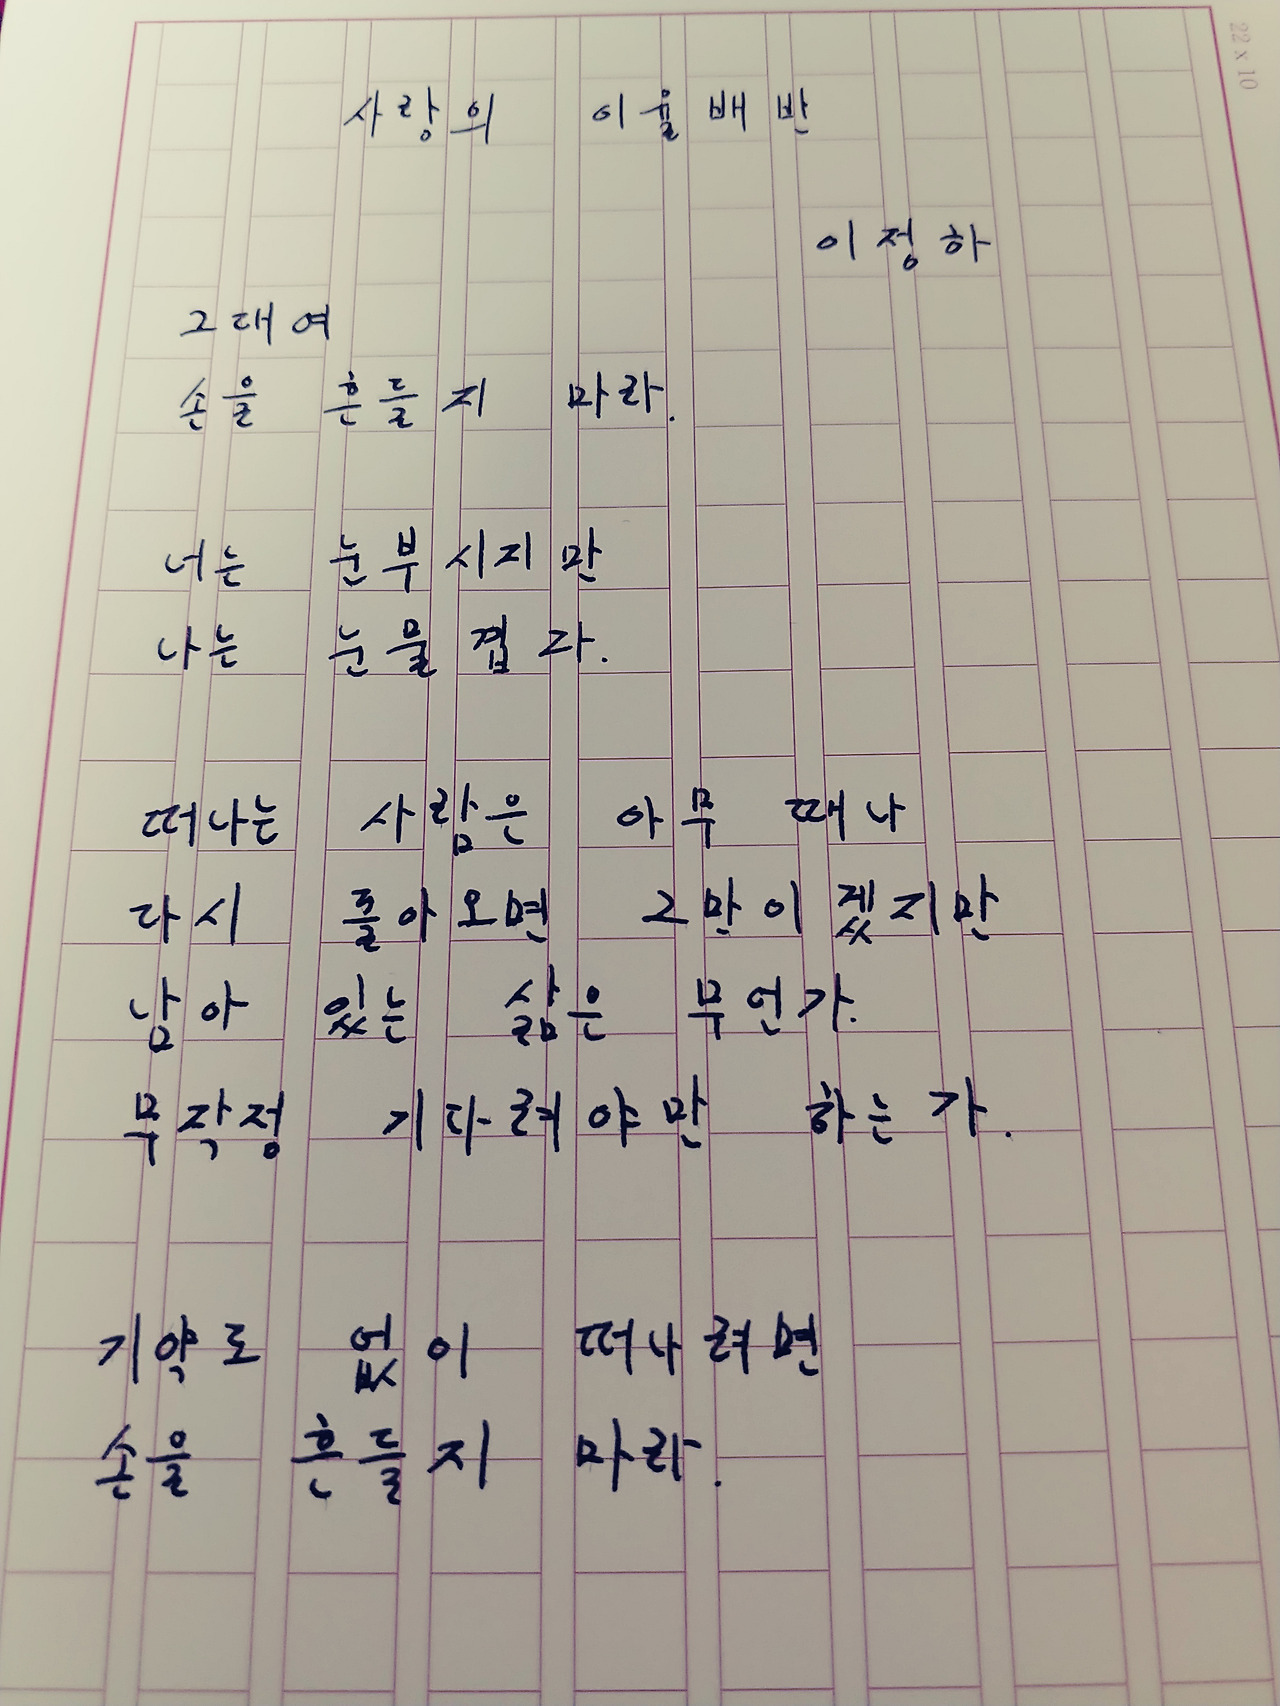 22 x 10
사랑의 이율배반
이정하
그대여
손을 흔들지 마라.
너는 눈부시지만
나는 눈물겹다.
떠나는 사람은 아무 때나
다시 돌아오면 그만이겠지만
남아 있는 삶은 무언가.
무작정 기다려야만 하는가.
기약도 없이 떠나려면
손을 흔들지 마라.